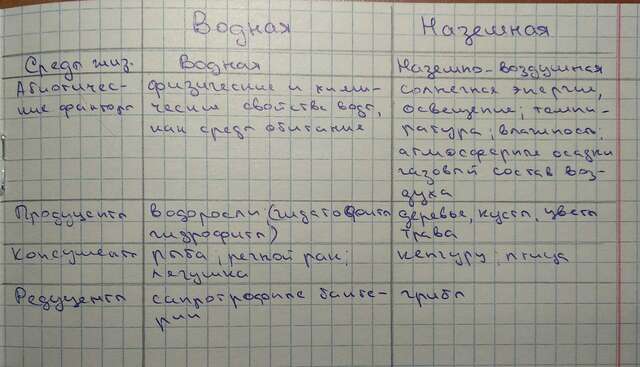 Водная Наземная
Среды жиз. Водная Наземно-воздушная
Абиотичес- физические и хими- солнечная энергия,
кие факторы ческие свойства воды, освещение; темпи-
как среды обитания ратура; влажность;
атмосферные осадки
газовый состав воз-
духа
Продуценты водоросли (гидатофиты деревье, кусты, цветы
гидрофиты) трава
Консументы рыба; речной рак; кенгуру; птица
лягушка
Редуценты сапротрофные бакте- грибы
рии